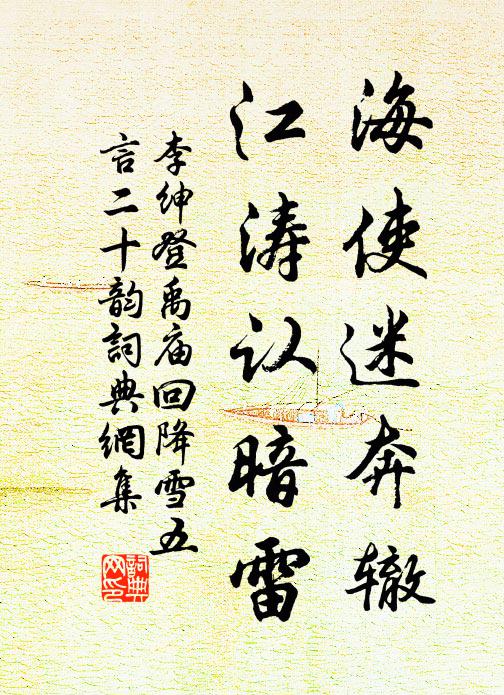 海使迷奔辙
江涛认暗雷
李绅登禹庙回降雪五
言二十韵詞典網集
詞典
网印